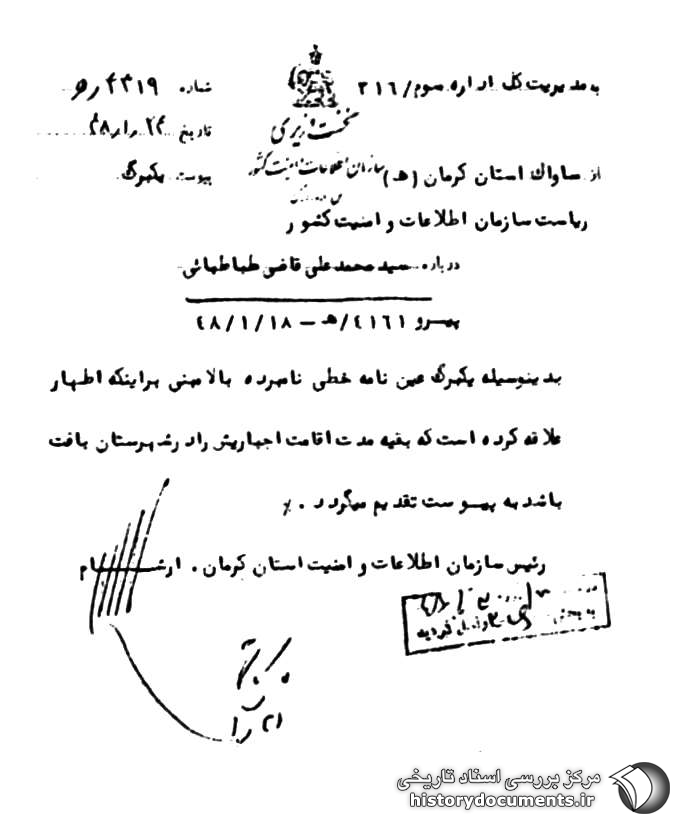 به مدیریت کل اداره سوم / ۳۱۶
شماره ۴۳۱۹ / ه
نخست وزیری
تاریخ ۲۴ / ۱ / ۴۸
سازمان اطلاعات و امنیت کشور
از ساواک استان کرمان (ه)
پیوست یکبرگ
ریاست سازمان اطلاعات و امنیت کشور
درباره سید محمد علی قاضی طباطبائی
پیرو ۴۱۶۱/ه‍ - ۴۸/۱/۱۸
بدینوسیله یکبرگ عین نامه خطی نامبرده بالا مبنی براینکه اظهار
علاقه کرده است که بقیه مدت اقامت اجباریش رادرشهرستان بافت
باشد به پیوست تقدیم میگردد . ٪
رئیس سازمان اطلاعات و امنیت استان کرمان . ارشام
به بخش
مرکز بررسی اسناد تاریخی
historydocuments.ir